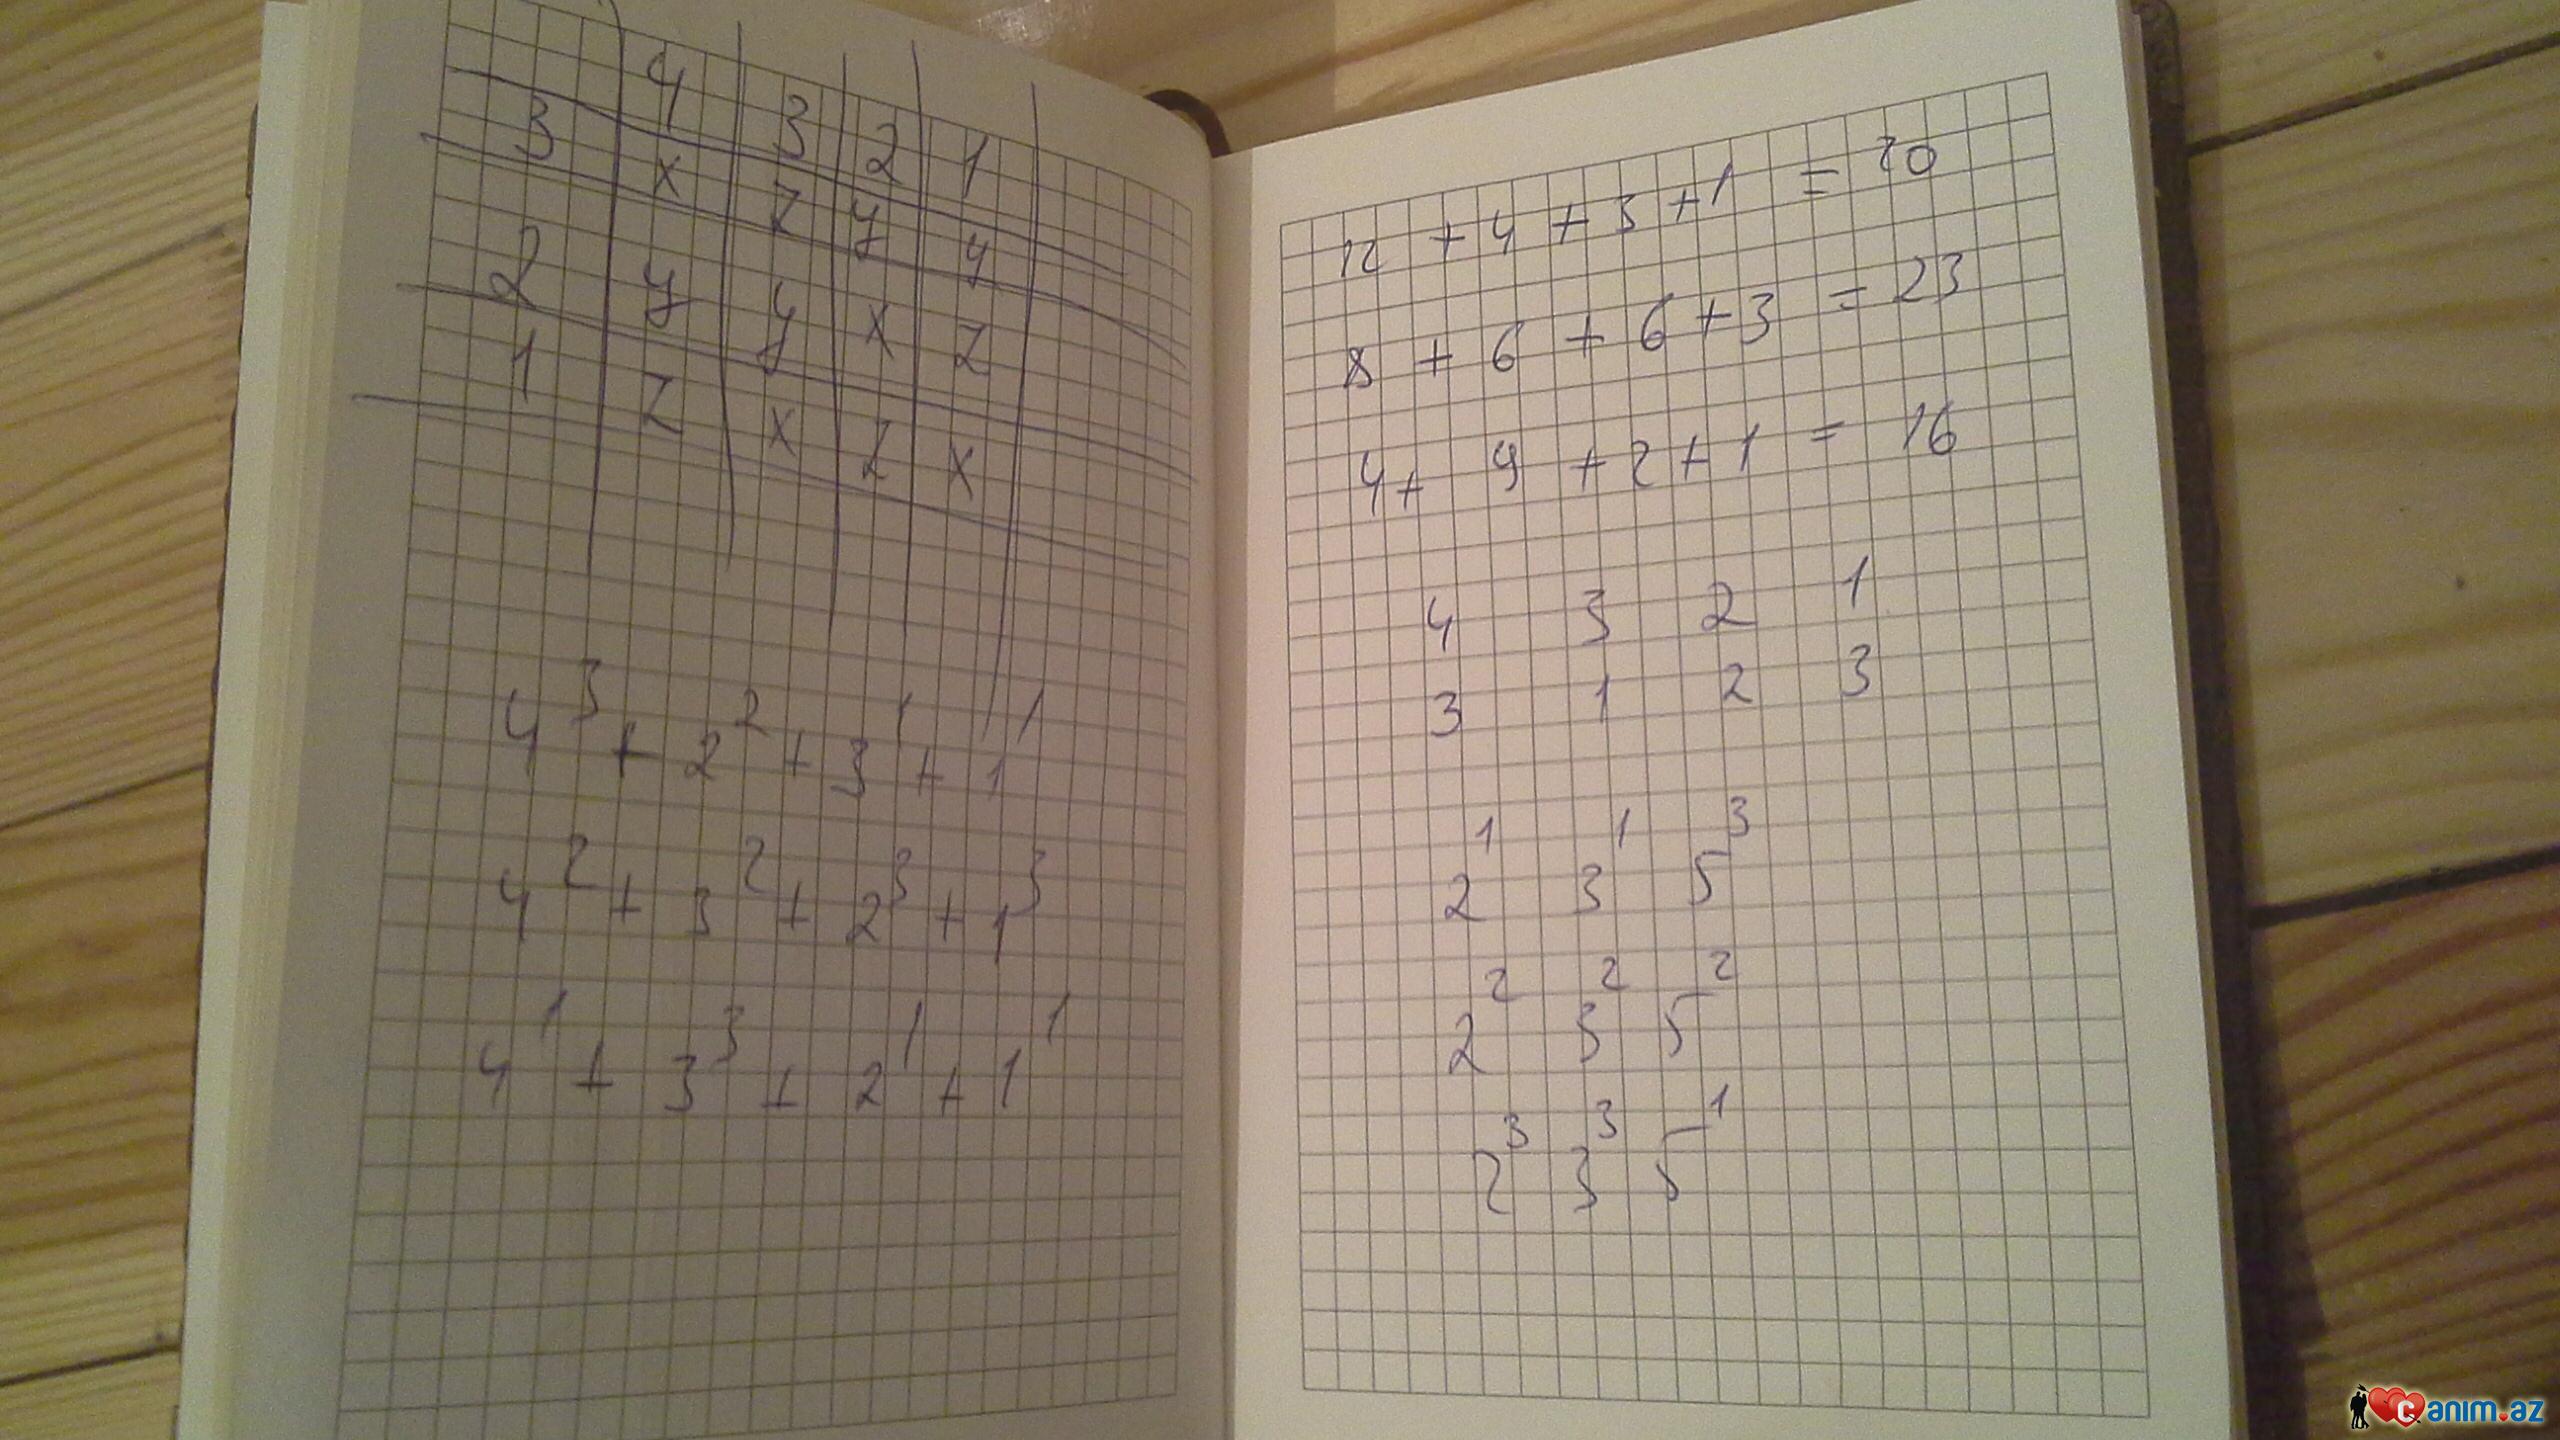 4 3 2 1
3 x z y y
2 y y x z
1 z x z x
4³ + 2² + 3¹ + 1¹
4² + 3² + 2³ + 1³
4¹ + 3³ + 2¹ + 1¹
12 + 4 + 3 + 1 = 20
8 + 6 + 6 + 3 = 23
4 + 9 + 2 + 1 = 16
4 3 2 1
3 1 2 3
2¹ 3¹ 5³
2² 3² 5²
2³ 3³ 5¹
Canim.az